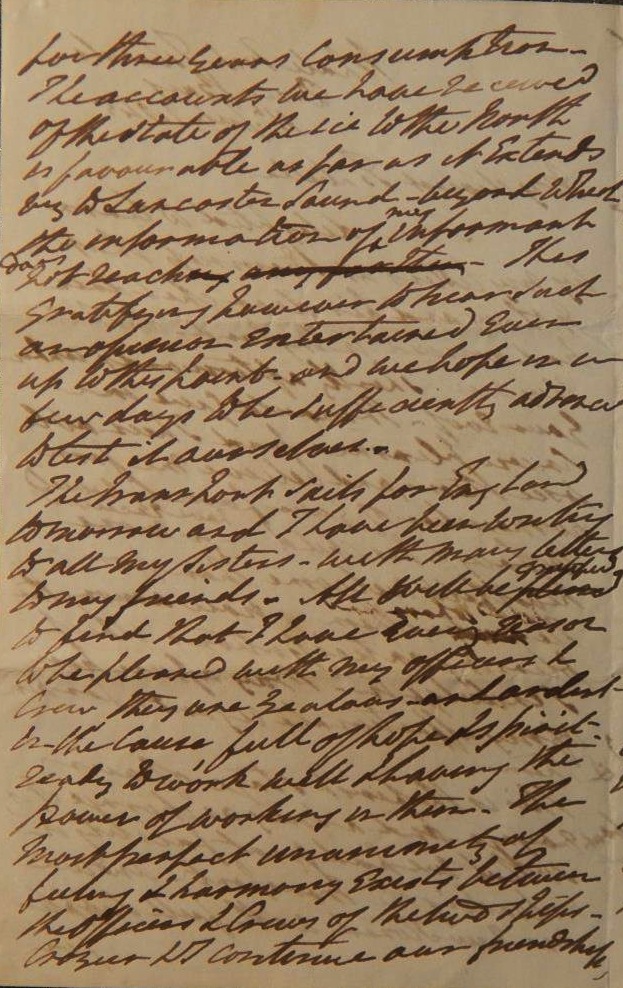 for three years consumption -
The accounts we have received
of the state of the ice to the North
is favourable as far as it extends
viz to Lancaster Sound - beyond which
the information of my informant
does not reaching any farther - This
gratifying however to hear such
an opinion entertained even
up to this point - and we hope in a
few days to be sufficiently advanced
to test it ourselves. -
The transport sails for England
tomorrow and I have been writing
to all my Sisters - with many letters
to my friends - All will be
to find that I have every reason
to be pleased with my officers &
Crew they are zealous - and ardent -
in the cause, full of hope & spirit -
ready to work well & having the
power of working in them - The
most perfect unanimity of
feeling & harmony exists between
the officers & Crews of the two Ships -
Crozier & I continue our friendship,